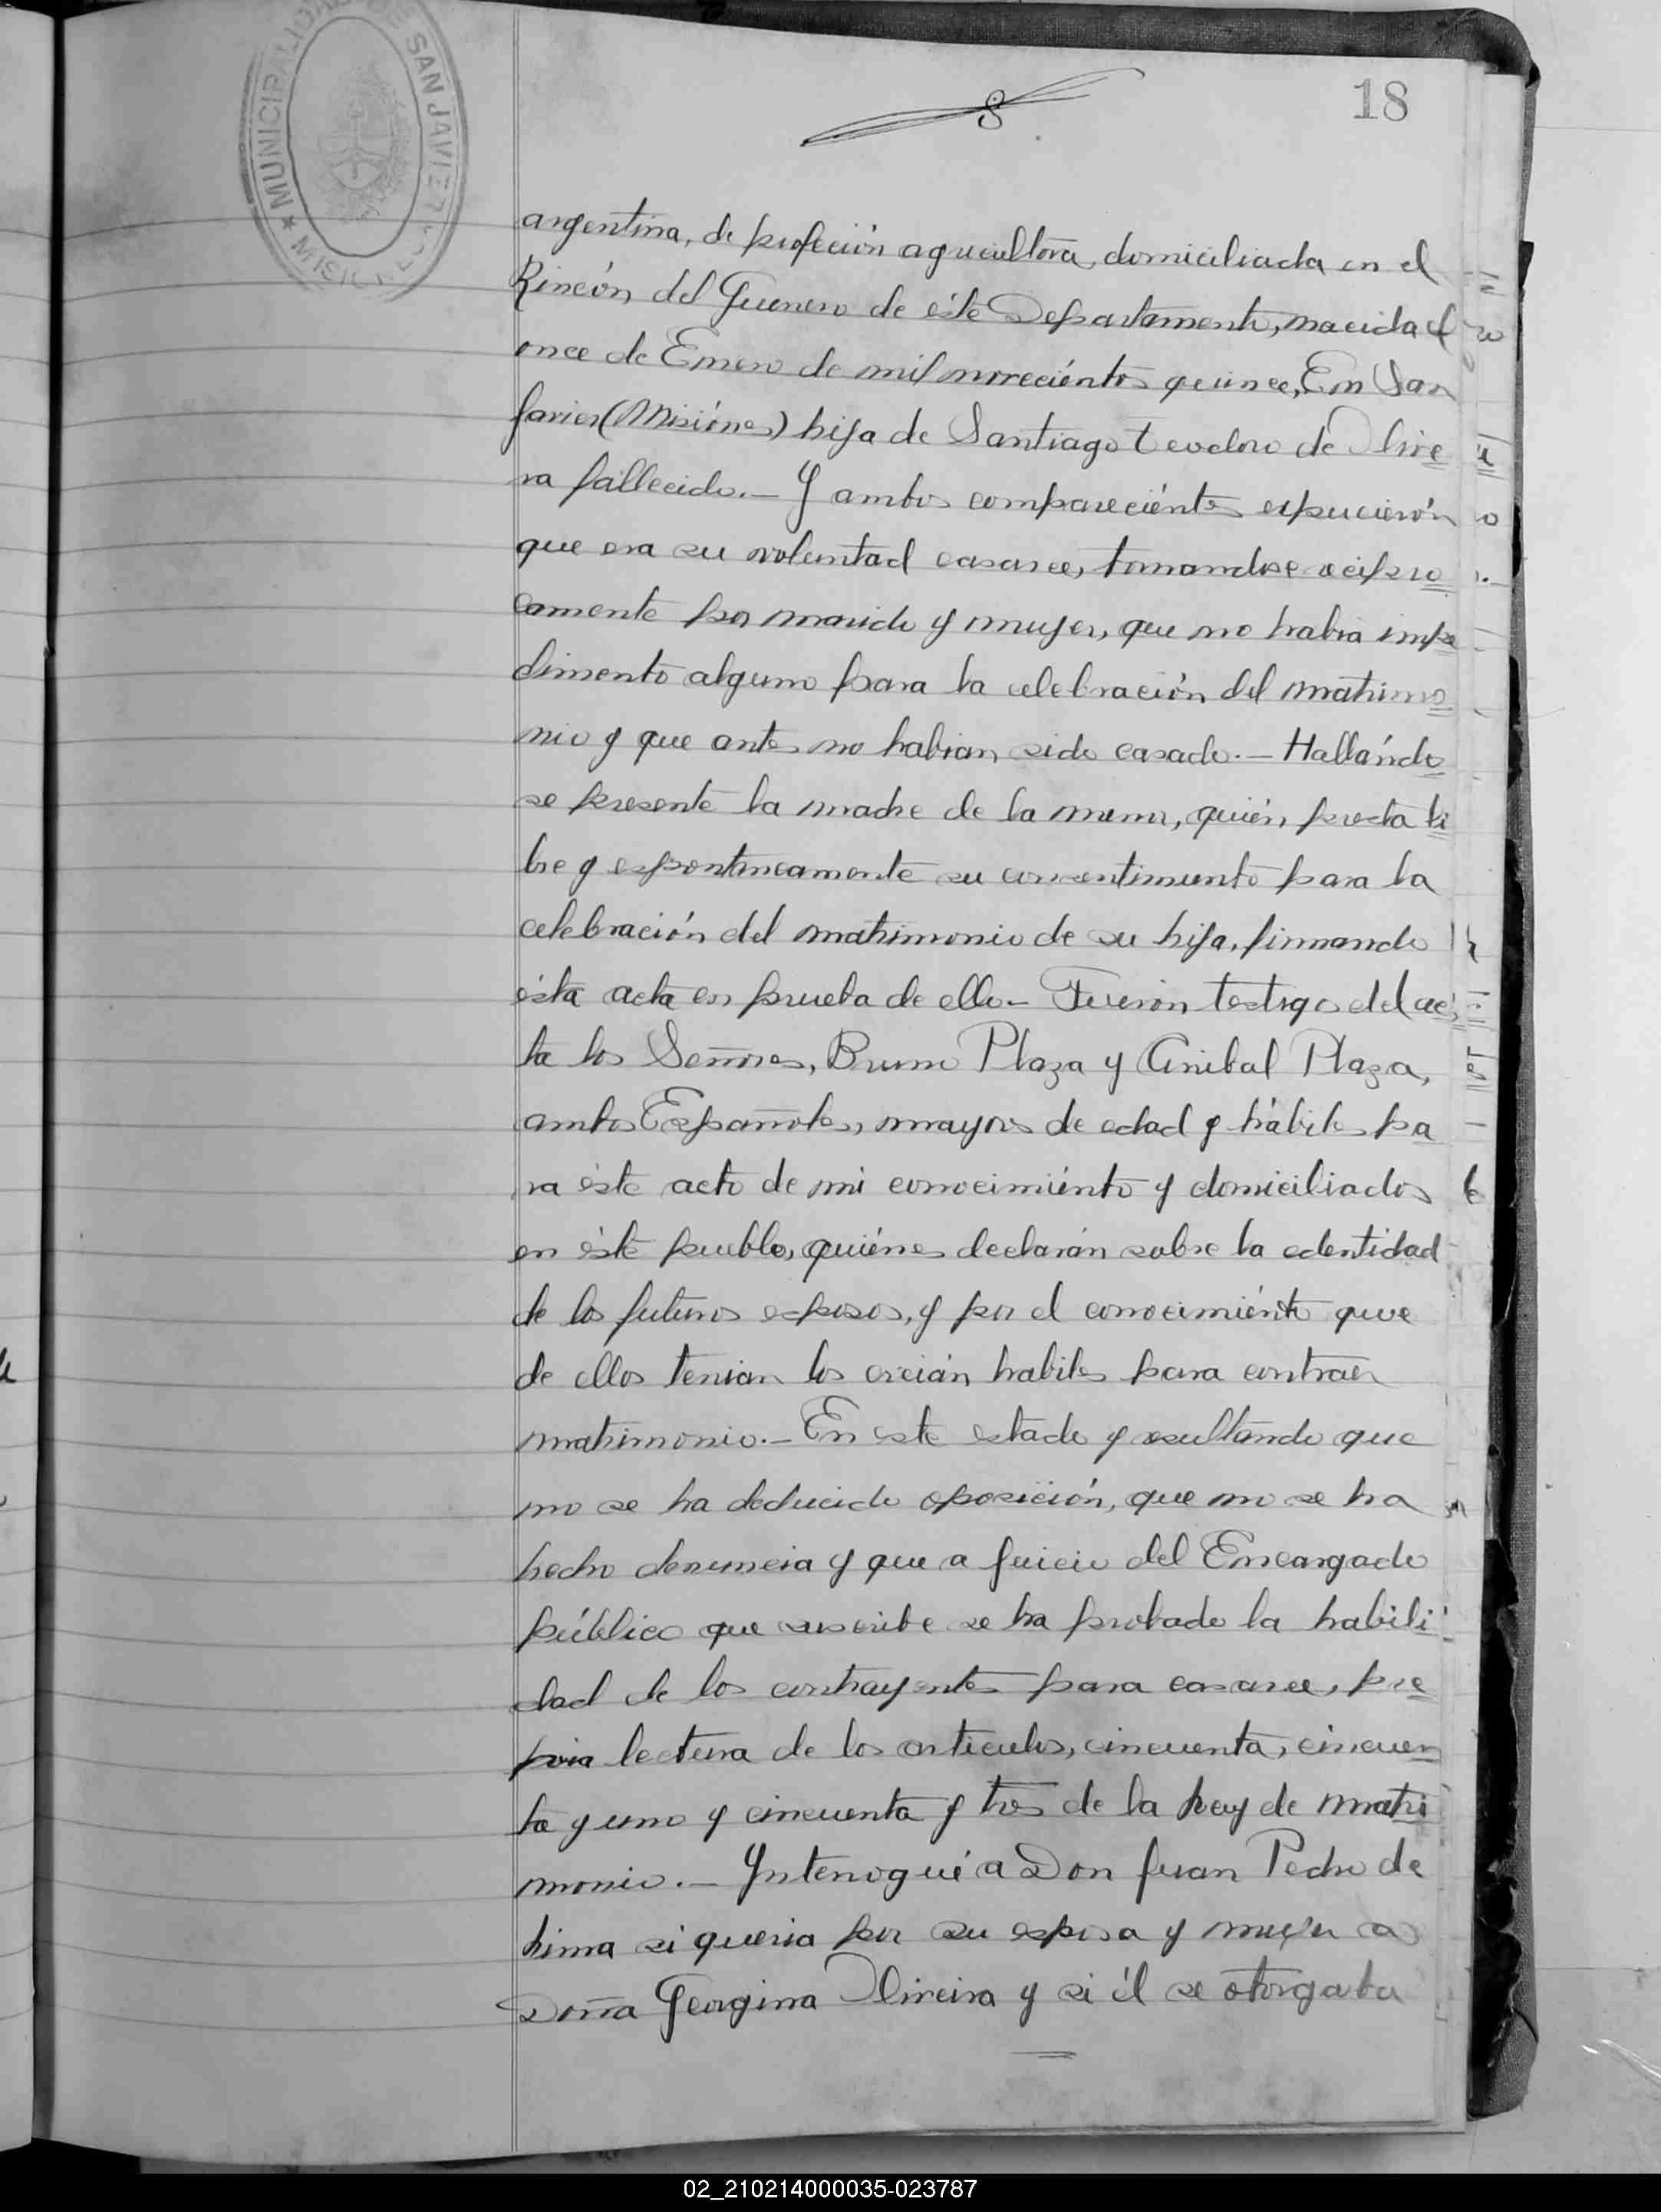 8
18
MUNICIPALIDAD DE SAN JAVIER
★ MISIONES
argentina, de profeción agricultora, domiciliada en el
Rincón del Guerrero de éste Departamento, nacida el
once de Enero de mil novecientos quince, En San
Javier (Misiónes) hija de Santiago teodoro de Olive
ra fallecido.— Y ambos compareciéntes expucierón
que era su voluntad casarce, tomandose recipro
camente por marido y mujer, que no habia impe
dimento alguno para la celebración del matrimo
nio y que antes no habian sido casado.— Hallándo
se presente la madre de la menor, quién, presta li
bre y espontineamente su consentimiento para la
celebración del matrimonio de su hija, firmando
ésta acta en prueba de ello— Fuerón testigos del ac
ta los Señores, Bruno Plaza y Anibal Plaza,
ambos Españoles, mayores de edad y hábiles pa
ra éste acto de mi conocimiénto y domiciliados
en éste pueblo, quiénes declarán sobre la edentidad
de los futuros esposos, y por el conocimiénto que
de ellos tenian los creián habiles para contraer
matrimonio.— En este estado y resultando que
no se ha deducido oposición, que no se ha
hecho denuncia y que a juicio del Encargado
público que suscribe se ha probado la habili
dad de los contrayentes para casarce, pre
via lectura de los articulos, cincuenta, cincuen
ta y uno y cincuenta y tres de la Ley de matri
monio.— Ynterrogué a Don Juan Pedro de
Lima si queria por su esposa y mujer a
Doña Georgina Oliveira y si él se otorgaba
02_210214000035-023787